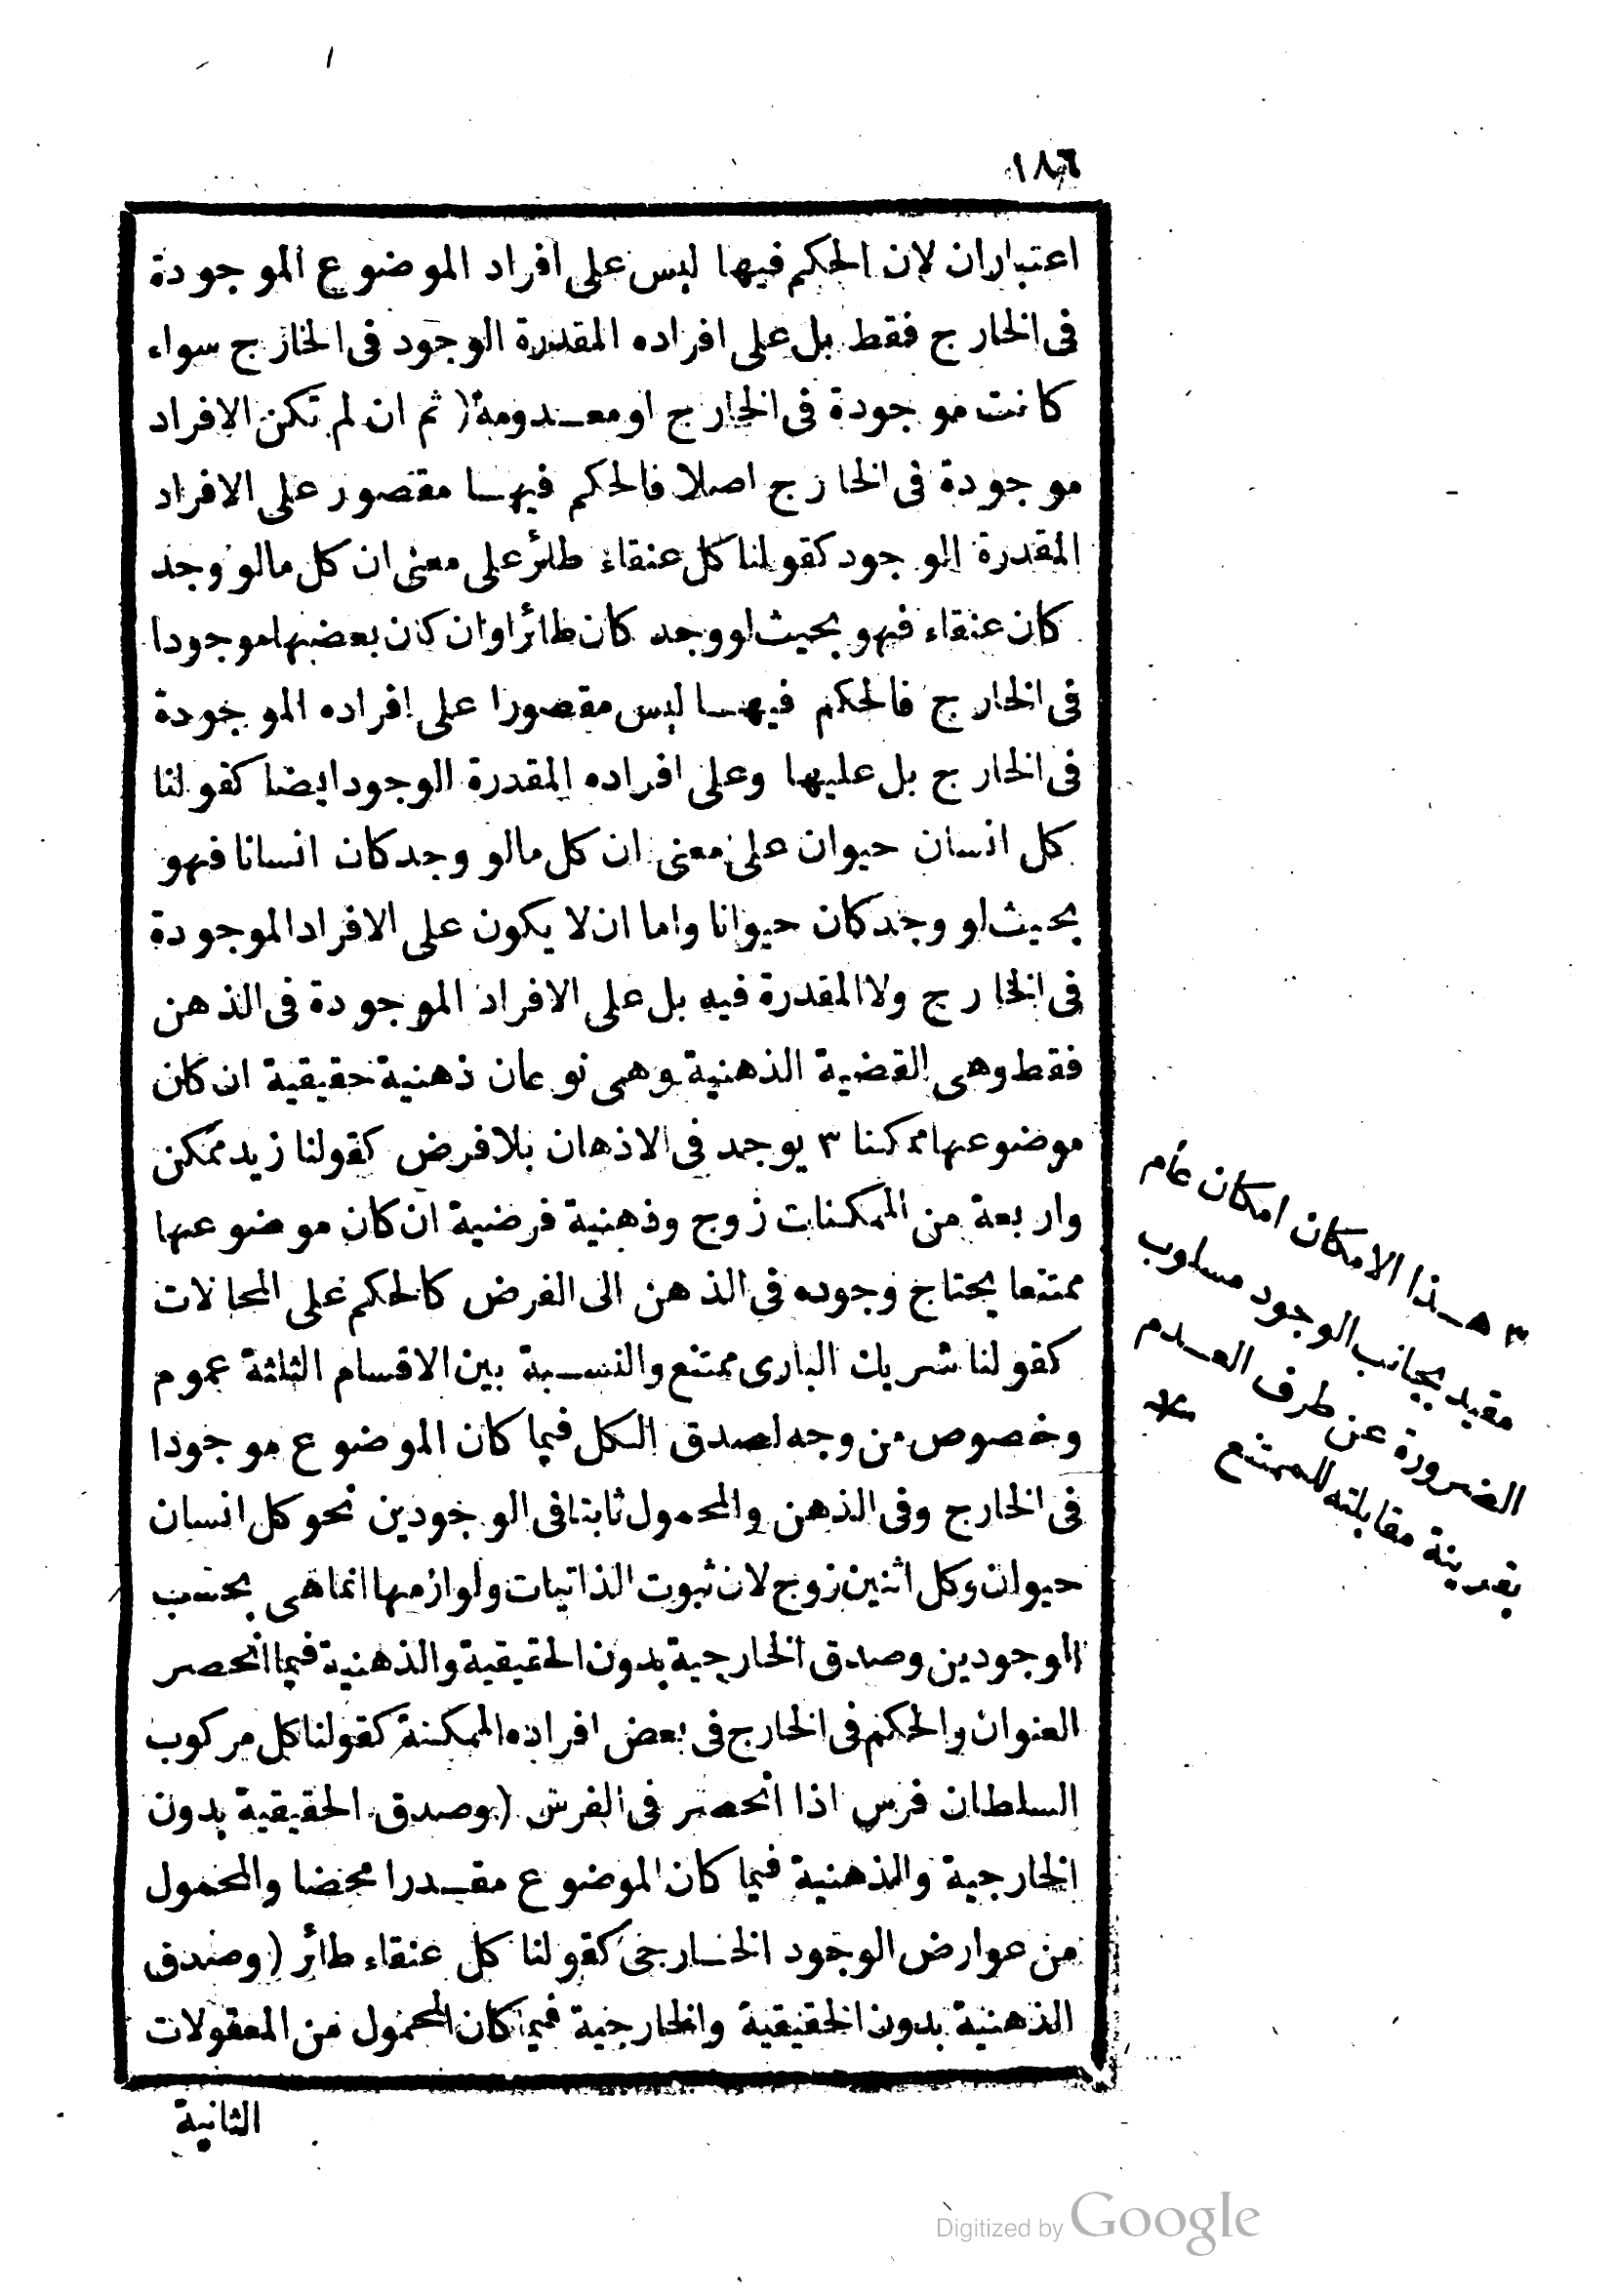 ١٨٦
اعتباران لان الحكم فيها ليس على افراد الموضوع الموجودة
فى الخارج فقط بل على افراده المقدرة الوجود فى الخارج سواء
كانت موجودة فى الخارج او معدومة (ثم ان لم تكن الافراد
موجودة فى الخارج اصلا فالحكم فيها مقصور على الافراد
المقدرة الوجود كقولنا كل عنقاء طائر على معنى ان كل مالو وجد
كان عنقاء فهو بحيث لو وجد كان طائرا وان كان بعضها موجودا
فى الخارج فالحكم فيها ليس مقصورا على افراده الموجودة
فى الخارج بل عليها وعلى افراده المقدرة الوجود ايضا كقولنا
كل انسان حيوان على معنى ان كل مالو وجد كان انسانا فهو
بحيث لو وجد كان حيوانا واما ان لا يكون على الافراد الموجودة
فى الخارج ولا المقدرة فيه بل على الافراد الموجودة فى الذهن
فقط وهى القضية الذهنية وهى نوعان ذهنية حقيقية ان كان
موضوعها ممكنا ٣ يوجد فى الاذهان بلا فرض كقولنا زيد ممكن
واربعة من الممكنات زوج وذهنية فرضية ان كان موضوعها
ممتنعا يحتاج وجوده فى الذهن الى الفرض كالحكم على المحالات
كقولنا شريك البارى ممتنع والنسبة بين الاقسام الثلثة عموم
وخصوص من وجه لصدق الكل فيما كان الموضوع موجودا
فى الخارج وفى الذهن والمحمول ثابتا فى الوجودين نحو كل انسان
حيوان وكل اثنين زوج لان ثبوت الذاتيات ولوازمها انما هى بحسب
الوجودين وصدق الخارجية بدون الحقيقية والذهنية فيما انحصر
العنوان والحكم فى الخارج فى بعض افراده الممكنة كقولنا كل مركوب
السلطان فرس اذا انحصر فى الفرس (وصدق الحقيقية بدون
الخارجية والذهنية فيما كان الموضوع مقدرا محضا والمحمول
من عوارض الوجود الخارجى كقولنا كل عنقاء طائر (وصدق
الذهنية بدون الحقيقية والخارجية فيما كان المحمول من المعقولات
الثانية
٣ هذا الامكان امكان عام
مقيد بجانب الوجود مسلوب
الضرورة عن طرف العدم
بقرينة مقابلته للممتنع *
Digitized by Google